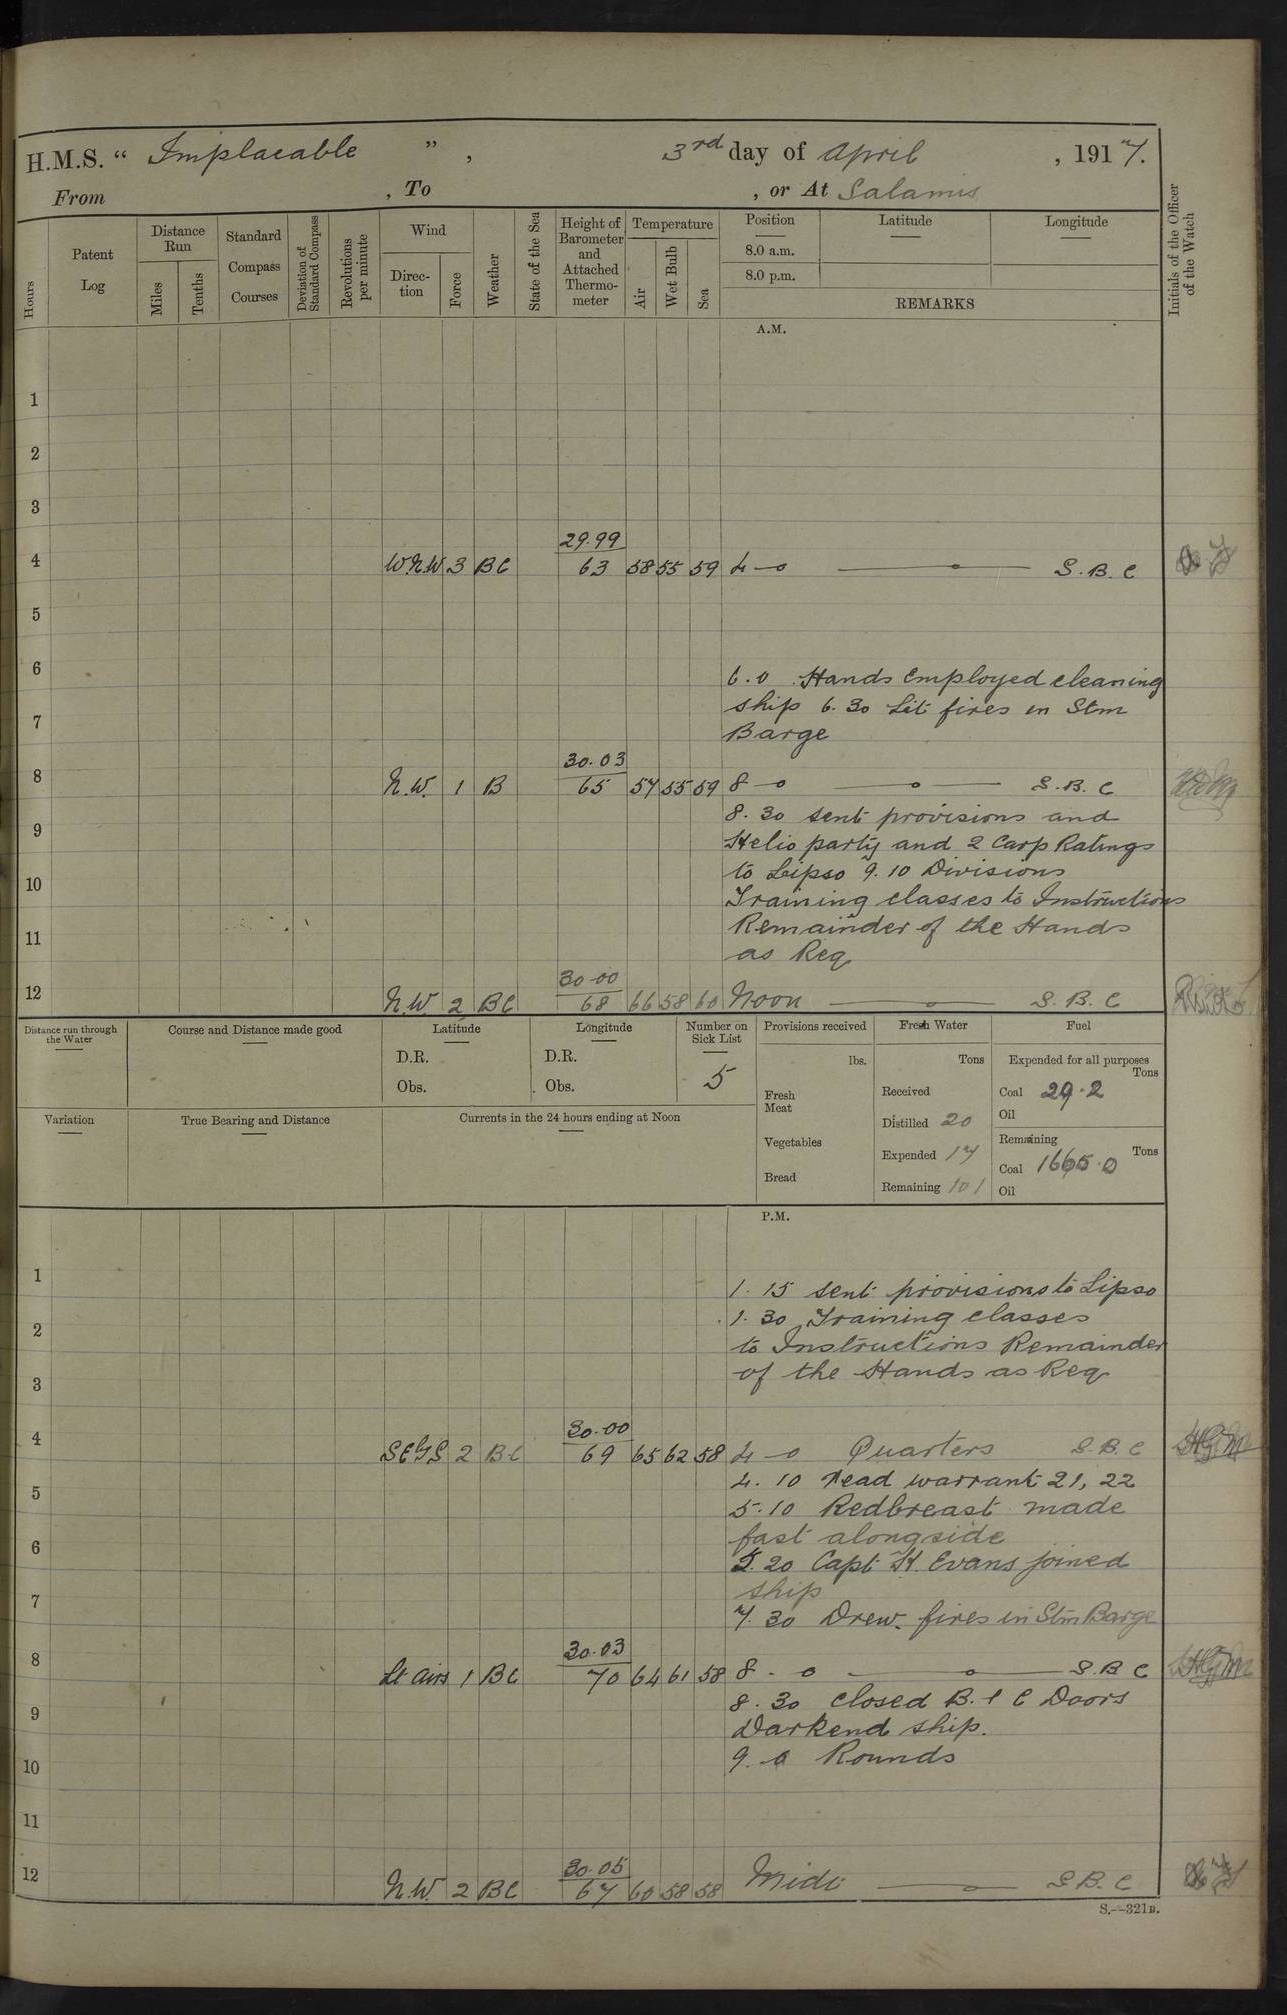 H.M.S. “ Implacable ” , 3rd day of April , 1917.
From , To , or At Salamis
Hours
Patent Log
Distance Run
Miles
Tenths
Standard Compass Courses
Deviation of Standard Compass
Revolutions per minute
Wind
Direc-tion
Force
Weather
State of the Sea
Height of Barometer and Attached Thermo-meter
Temperature
Air
Wet Bulb
Sea
Position Latitude Longitude
8.0 a.m.
8.0 p.m.
REMARKS
Initials of the Officer of the Watch
A.M.
1
2
3
29.99
4 WNW 3 BC 63 58 55 59 4 - o S.B.C
5
6
6.0 Hands employed cleaning
ship 6.30 Lit fires in Stm
7
Barge
30.03
8 N.W. 1 B 65 57 55 59 8 - o S.B.C
8.30 sent provisions and
9
Helio party and 2 Carp Ratings
to Lipso 9.10 Divisions
10
Training classes to Instructions
Remainder of the Hands
11
as Req
30.00
12 N.W 2 BC 68 66 58 60 Noon S.B.C
Distance run through the Water
Course and Distance made good
Latitude
D.R.
Obs.
Longitude
D.R.
Obs.
Number on Sick List
5
Provisions received
lbs.
Fresh Meat
Vegetables
Bread
Fresh Water
Tons
Received
Distilled 20
Expended 17
Remaining 101
Fuel
Expended for all purposes
Tons
Coal 29.2
Oil
Remaining
Tons
Coal 1665.0
Oil
Variation
True Bearing and Distance
Currents in the 24 hours ending at Noon
P.M.
1
1.15 sent provisions to Lipso
1.30 Training classes
2
to Instructions Remainder
of the Hands as Req
3
30.00
4 SE'lyS 2 BC 69 65 62 58 4 - o Quarters S.B.C
4.10 read warrant 21, 22
5
5.10 Redbreast made
fast alongside
6
5.20 Capt H. Evans joined
ship
7
7.30 Drew. fires in Stm Barge
30.03
8 Lt airs 1 BC 70 64 61 58 8 . o S.B C
8.30 closed B. & C Doors
9
Darkend ship.
9.0 Rounds
10
11
30.05
12 N.W. 2 BC 67 60 58 58 Midt S B.C
S.—321B.